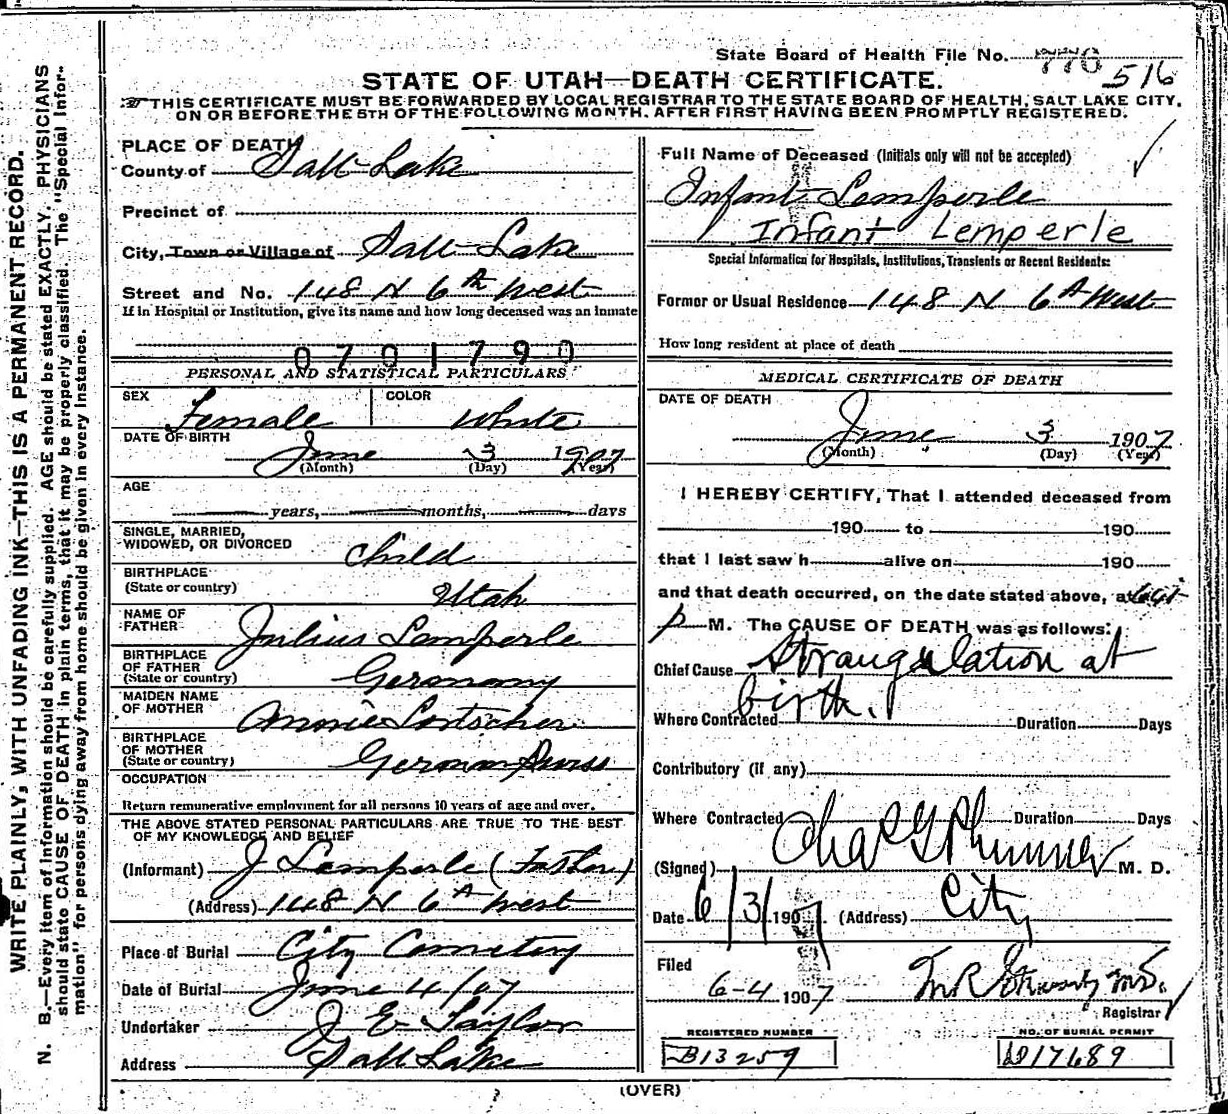 State Board of Health File No. 770 516
STATE OF UTAH—DEATH CERTIFICATE.
THIS CERTIFICATE MUST BE FORWARDED BY LOCAL REGISTRAR TO THE STATE BOARD OF HEALTH, SALT LAKE CITY,
ON OR BEFORE THE 5TH OF THE FOLLOWING MONTH, AFTER FIRST HAVING BEEN PROMPTLY REGISTERED.
WRITE PLAINLY, WITH UNFADING INK—THIS IS A PERMANENT RECORD.
N. B.—Every item of information should be carefully supplied. AGE should be stated EXACTLY. PHYSICIANS
should state CAUSE OF DEATH in plain terms, that it may be properly classified. The "Special Infor-
mation" for persons dying away from home should be given in every instance.
PLACE OF DEATH
County of Salt Lake
Precinct of
City, Town or Village of Salt Lake
Street and No. 148 N 6th West
If in Hospital or Institution, give its name and how long deceased was an inmate
0701790
PERSONAL AND STATISTICAL PARTICULARS
SEX Female COLOR White
DATE OF BIRTH
June 3 1907
(Month) (Day) (Year)
AGE
years, months, days
SINGLE, MARRIED,
WIDOWED, OR DIVORCED child
BIRTHPLACE
(State or country) Utah
NAME OF
FATHER Julius Lemperle
BIRTHPLACE
OF FATHER
(State or country) Germany
MAIDEN NAME
OF MOTHER Annie
BIRTHPLACE
OF MOTHER
(State or country) German Swiss
OCCUPATION
Return remunerative employment for all persons 10 years of age and over.
THE ABOVE STATED PERSONAL PARTICULARS ARE TRUE TO THE BEST
OF MY KNOWLEDGE AND BELIEF
(Informant) J Lemperle (Father)
(Address) 148 N 6th West
Place of Burial City Cemetery
Date of Burial June 4/07
Undertaker J E Taylor
Address Salt Lake
Full Name of Deceased (Initials only will not be accepted)
Infant Lemperle
Infant Lemperle
Special Information for Hospitals, Institutions, Transients or Recent Residents:
Former or Usual Residence 148 N 6th West
How long resident at place of death
MEDICAL CERTIFICATE OF DEATH
DATE OF DEATH
June 3 1907
(Month) (Day) (Year)
I HEREBY CERTIFY, That I attended deceased from
190 to 190
that I last saw h alive on 190
and that death occurred, on the date stated above, at
p M. The CAUSE OF DEATH was as follows:
Chief Cause Strangulation at
birth.
Where Contracted Duration Days
Contributory (if any)
Where Contracted Duration Days
(Signed) Chas G Plummer M. D.
Date 6/3/1907 (Address) City
Filed
6-4 1907
Registrar
REGISTERED NUMBER
B13259
NO. OF BURIAL PERMIT
D17689
(OVER)